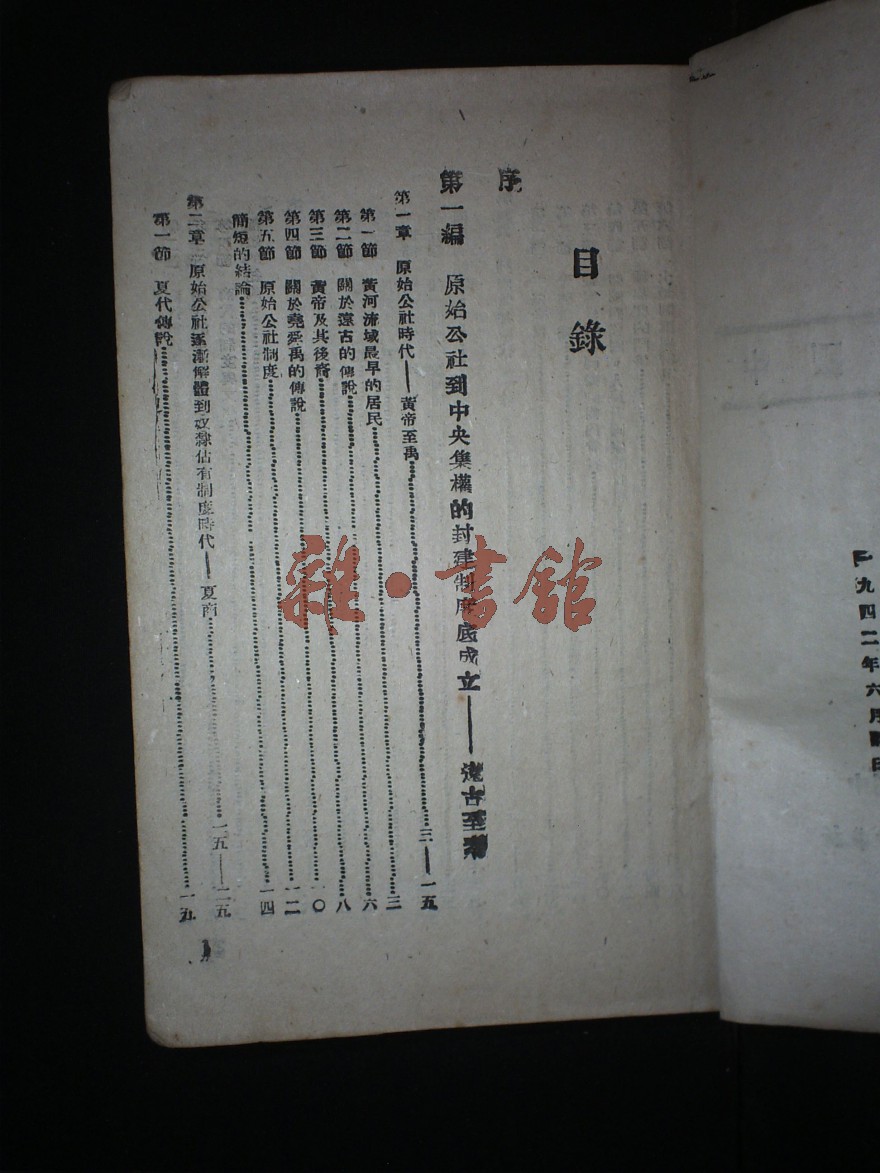 一九四二年六月
目錄
序
第一編 原始公社到中央集權的封建制度底成立——遠古至秦
第一章 原始公社時代——黃帝至禹……三——一五
第一節 黃河流域最早的居民……三
第二節 關於遠古的傳說……六
第三節 黃帝及其後裔……八
第四節 關於堯舜禹的傳說……一〇
第五節 原始公社制度……一二
簡短的結論……一四
第二章 原始公社逐漸解體到奴隸佔有制度時代——夏商……一五——二五
第一節 夏代傳說……一五
1
雜·書館